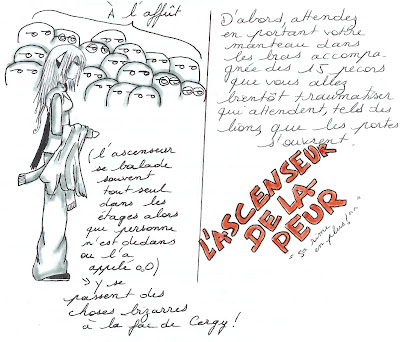 À l'affût
(l'ascenseur
se balade
souvent
tout seul
dans les
étages alors
que personne
n'est dedans
ou l'a
appelé o,O)
» y se
passent des
choses bizarres
à la fac de Cergy !
D'abors, attendez
en portant votre
manteau dans
les bras accompa
gnée des 15 pécors
que vous allez
bientôt traumatiser
qui attendent, tels des
lions que les portes
s'ouvrent.
L'ASCENSEUR
DE LA
PEUR
"Sa rime
en plus ! ^^"